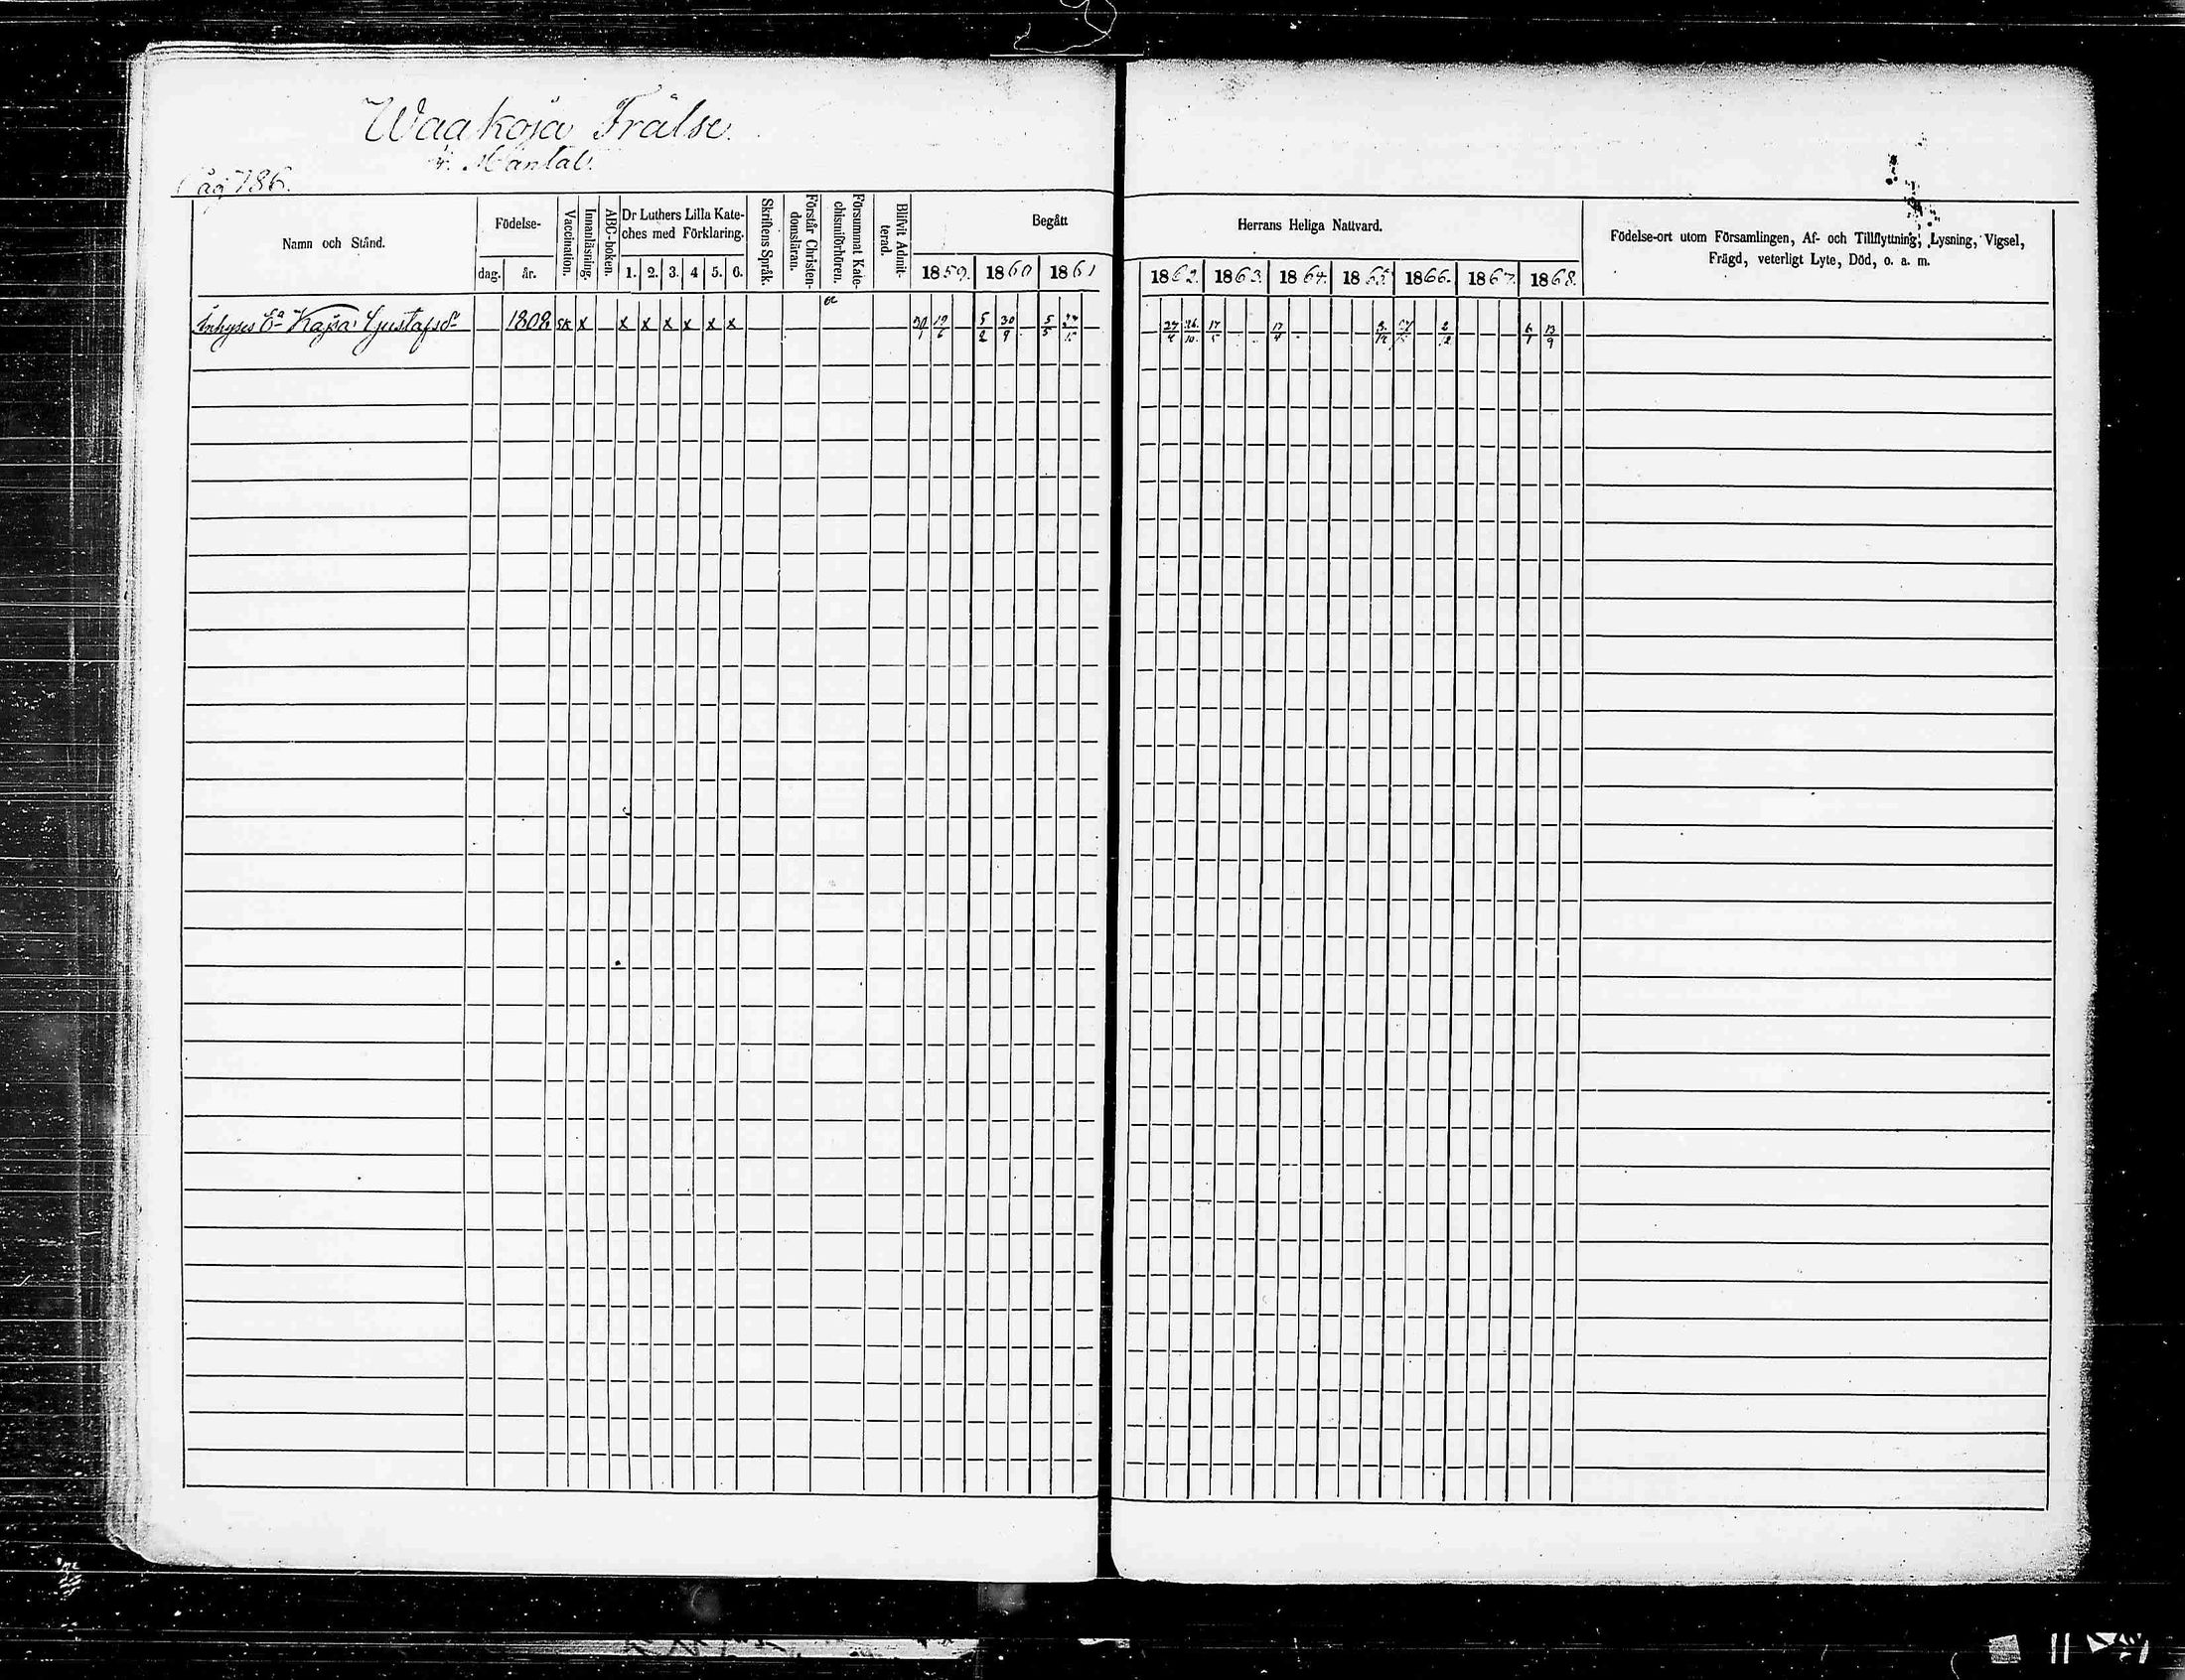 Waakoja Frälse.
Mantal.
Pag 786.
Namn och Stånd.
Födelse-
dag. år.
Vaccination.
Innanläsning.
ABC-boken.
Dr Luthers Lilla Kate-
ches med Förklaring.
1. 2. 3. 4 5. 6.
Skriftens Språk.
Förstår Christen-
domsläran.
Försummat Kate-
chismiförhören.
Blifvit Admit-
terad.
Begått
1859. 1860 1861
Herrans Heliga Nattvard.
1862. 1863. 1864. 1865. 1866. 1867. 1868.
Födelse-ort utom Församlingen, Af- och Tillflyttning, Lysning, Vigsel,
Frägd, veterligt Lyte, Död, o. a. m.
Inhyses Ea Kajsa Gustafsdr 1808 x x x x x x x 19/6 5/2 30/9 5/5 17/5 17/4 6/1 13/9